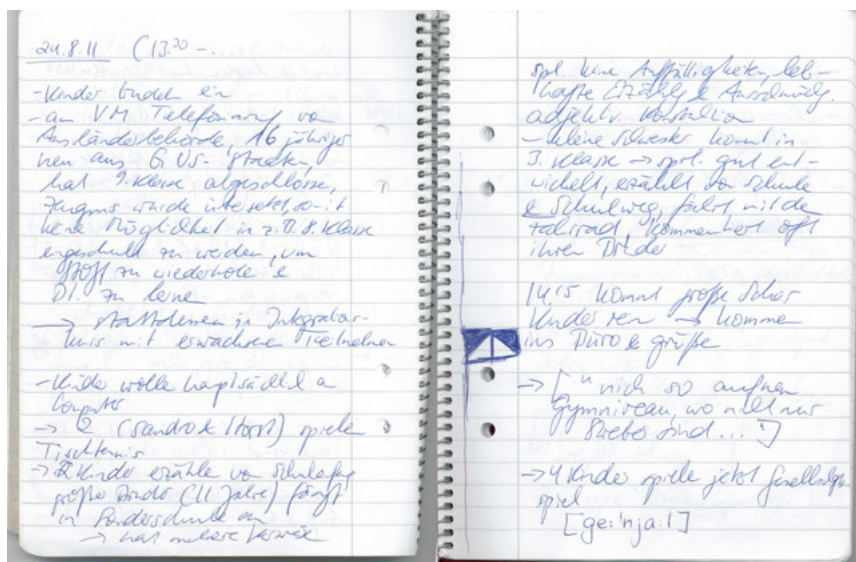 24.8.11 (13.30 - ...
- Kinder trudeln ein
- am VM Telefonanruf von
Ausländerbehörde, 16 jähriger
neu aus GUS-Staaten,
hat 9. Klasse abgeschlossen,
Zeugnis wurde übersetzt, somit
keine Möglichkeit in z.B. 8. Klasse
eingeschult zu werden, um
Stoff zu wiederholen &
Dt. zu lernen
→ stattdessen in Integrations-
kurs mit erwachsenen Teilnehmern
- Kinder wollen hauptsächlich an
Computer
→ 2 (Sandro & Horst) spielen
Tischtennis
→ 2 Kinder erzählen von Schulanfang
großer Bruder (11 Jahre) fängt
in Förderschule an
→ hat mehrere
spr. keine Auffälligkeiten, leb-
hafte Erzählg &
adjektiv.
- kleine Schwester kommt in
3. Klasse → sprl. gut ent-
wickelt, erzählt von Schule
& Schulweg, fährt mit dem
Fahrrad, kommentiert oft
ihren Bruder
14.15 kommt große Schar
Kinder rein → kommen
ins Büro & grüßen
→ ["nich so aufnem
gymniveau, wo nell nur
Streber sind..."]
→ 4 Kinder spielen jetzt Gesellschafts-
spiel
[ge:'nja:l]